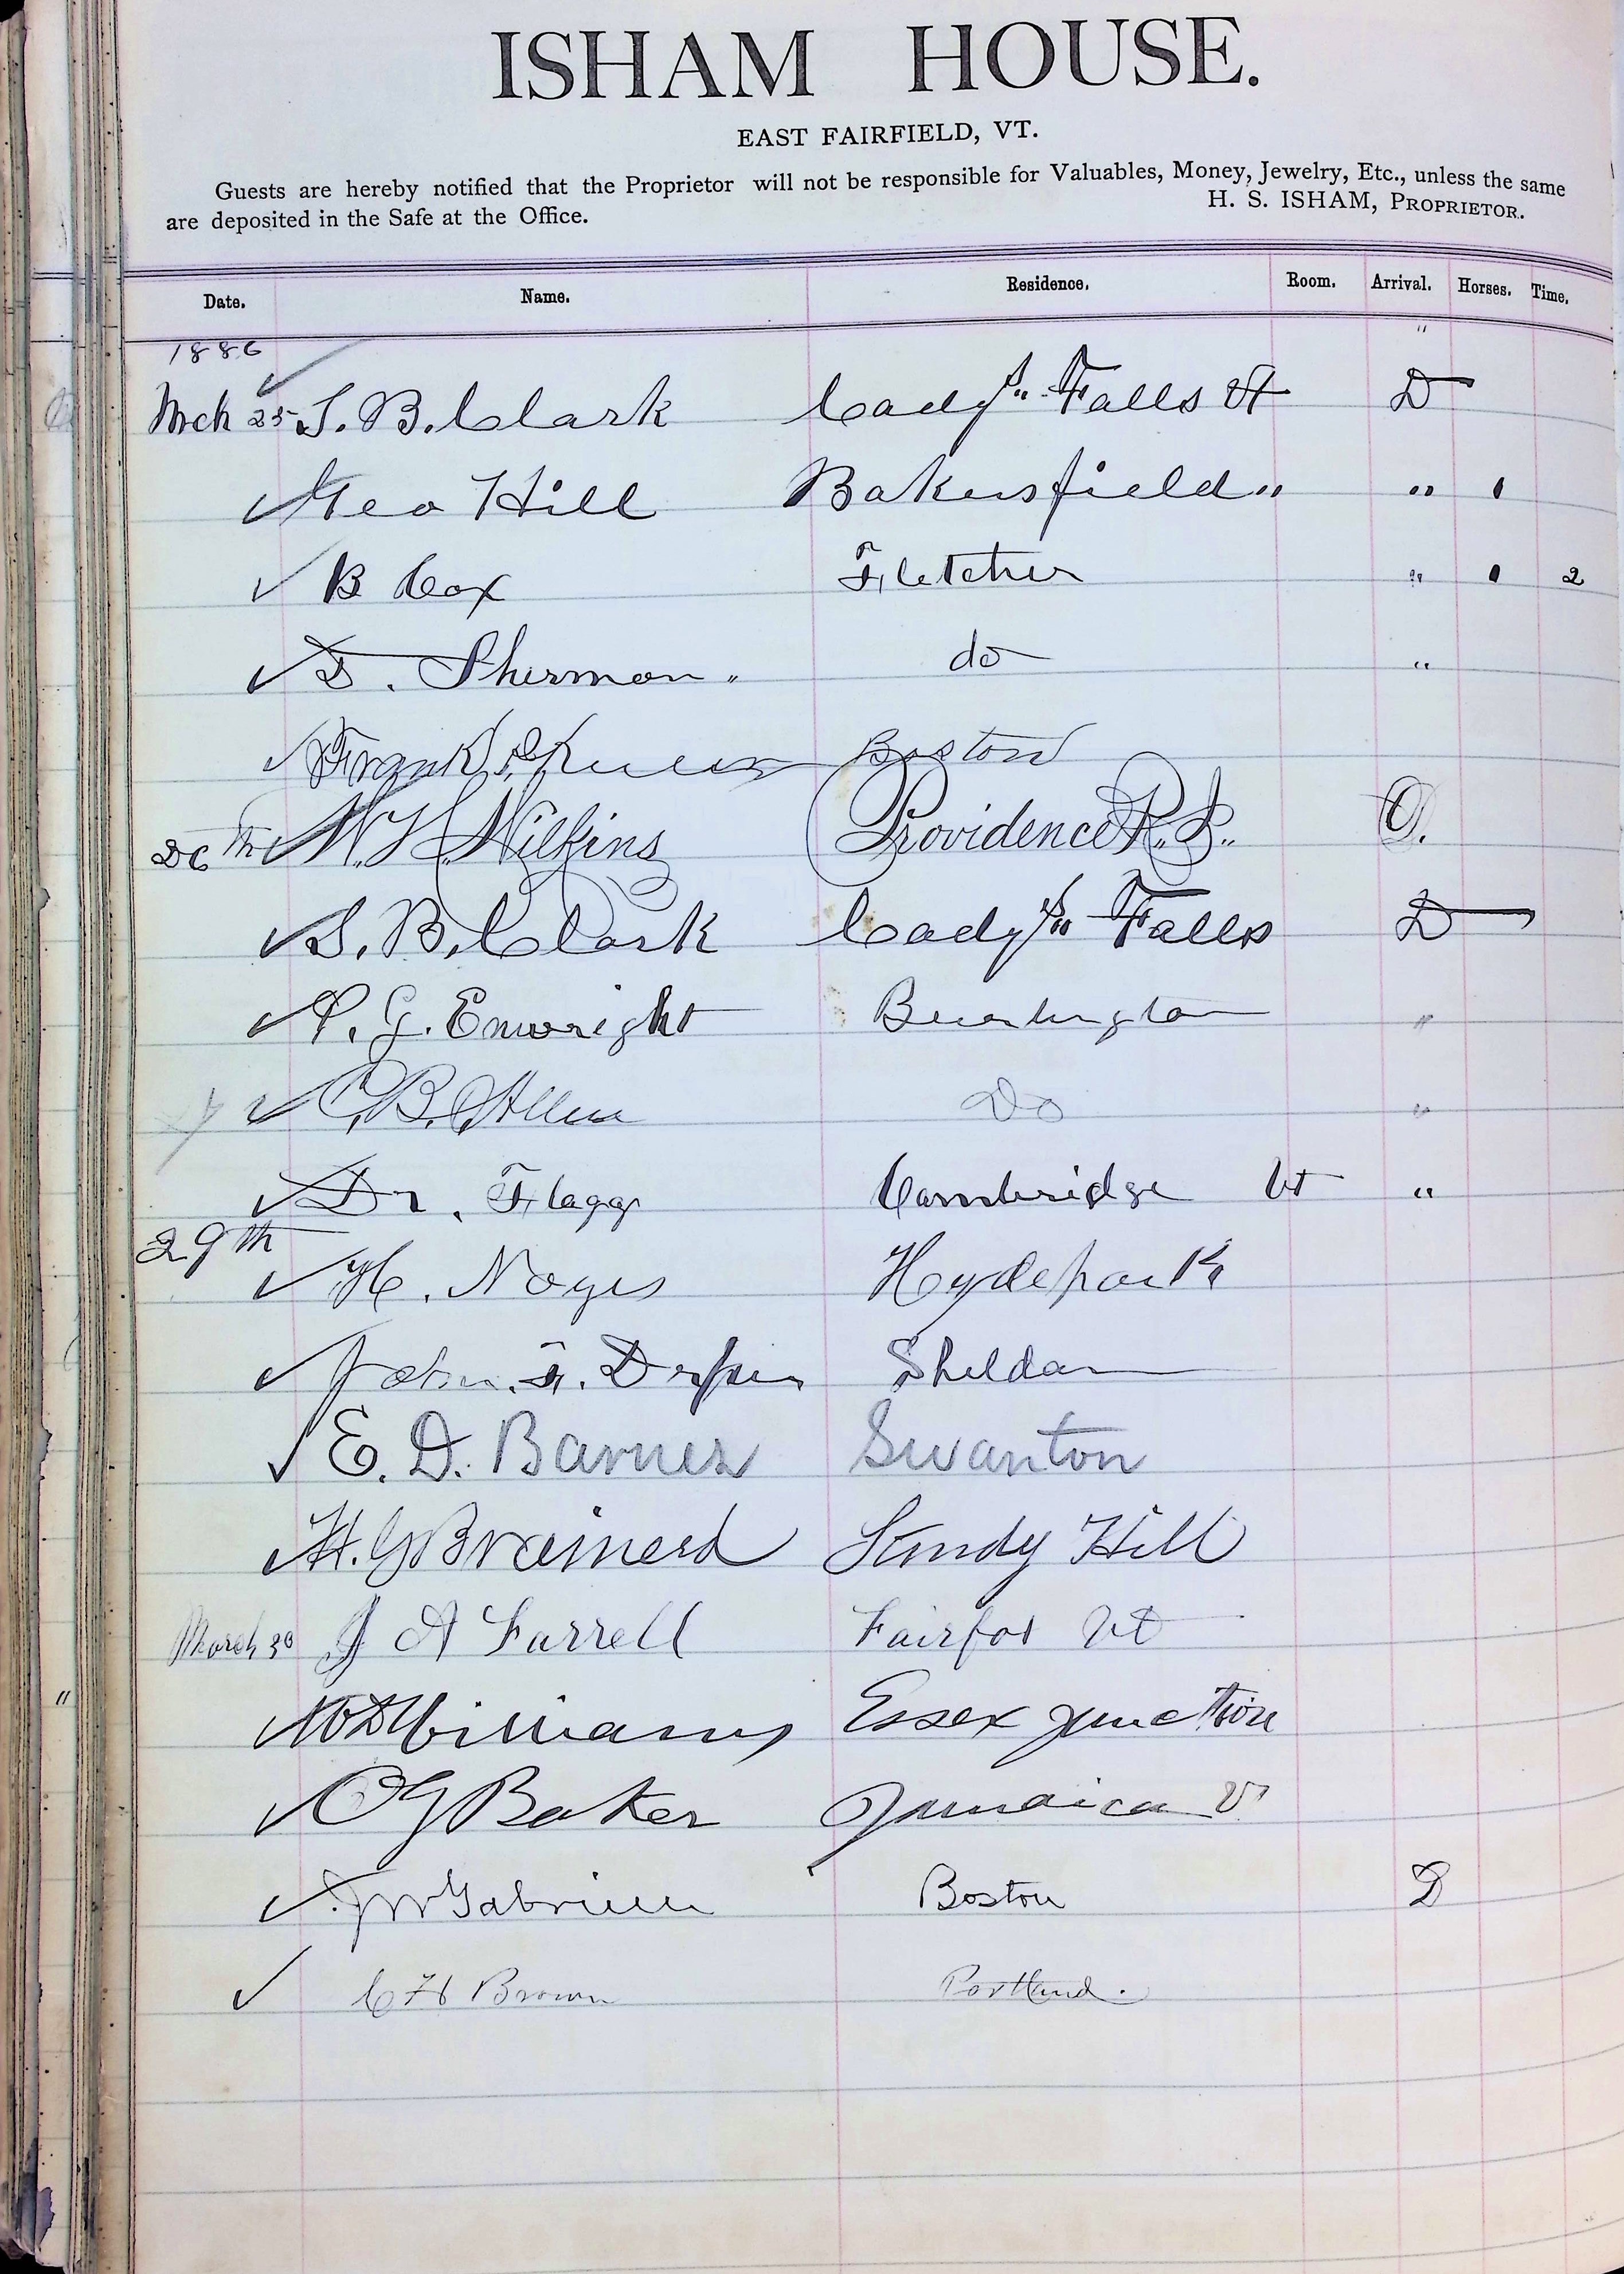 ISHAM HOUSE.
EAST FAIRFIELD, VT.
Guests are hereby notified that the Proprietor will not be responsible for Valuables, Money, Jewelry, Etc., unless the same
are deposited in the Safe at the Office. H. S. ISHAM, PROPRIETOR.
Date. Name. Residence. Room. Arrival. Horses. Time.
1886 "
Mch 25 S. B. Clark Cady's Falls Vt D
Geo Hill Bakersfield " " 1
B Cox Fletcher " 1 2
D. Sherman " do "
Frank Boston
26th Wilkins Providence R.I.
S. B. Clark Cady's Falls D
P. G. Enwright Burlington "
C. B. Allen Do "
Dr. Flagg Cambridge Vt "
29th
H. Noyes Hydepark
John. F. Sheldon
E. D. Barnes Swanton
H. G Brainerd Sandy Hill
March 30 J A Farrell Fairfax Vt
Williams Essex Junction
O G Baker Jamaica V
J W Boston D
C H Brown Portland.